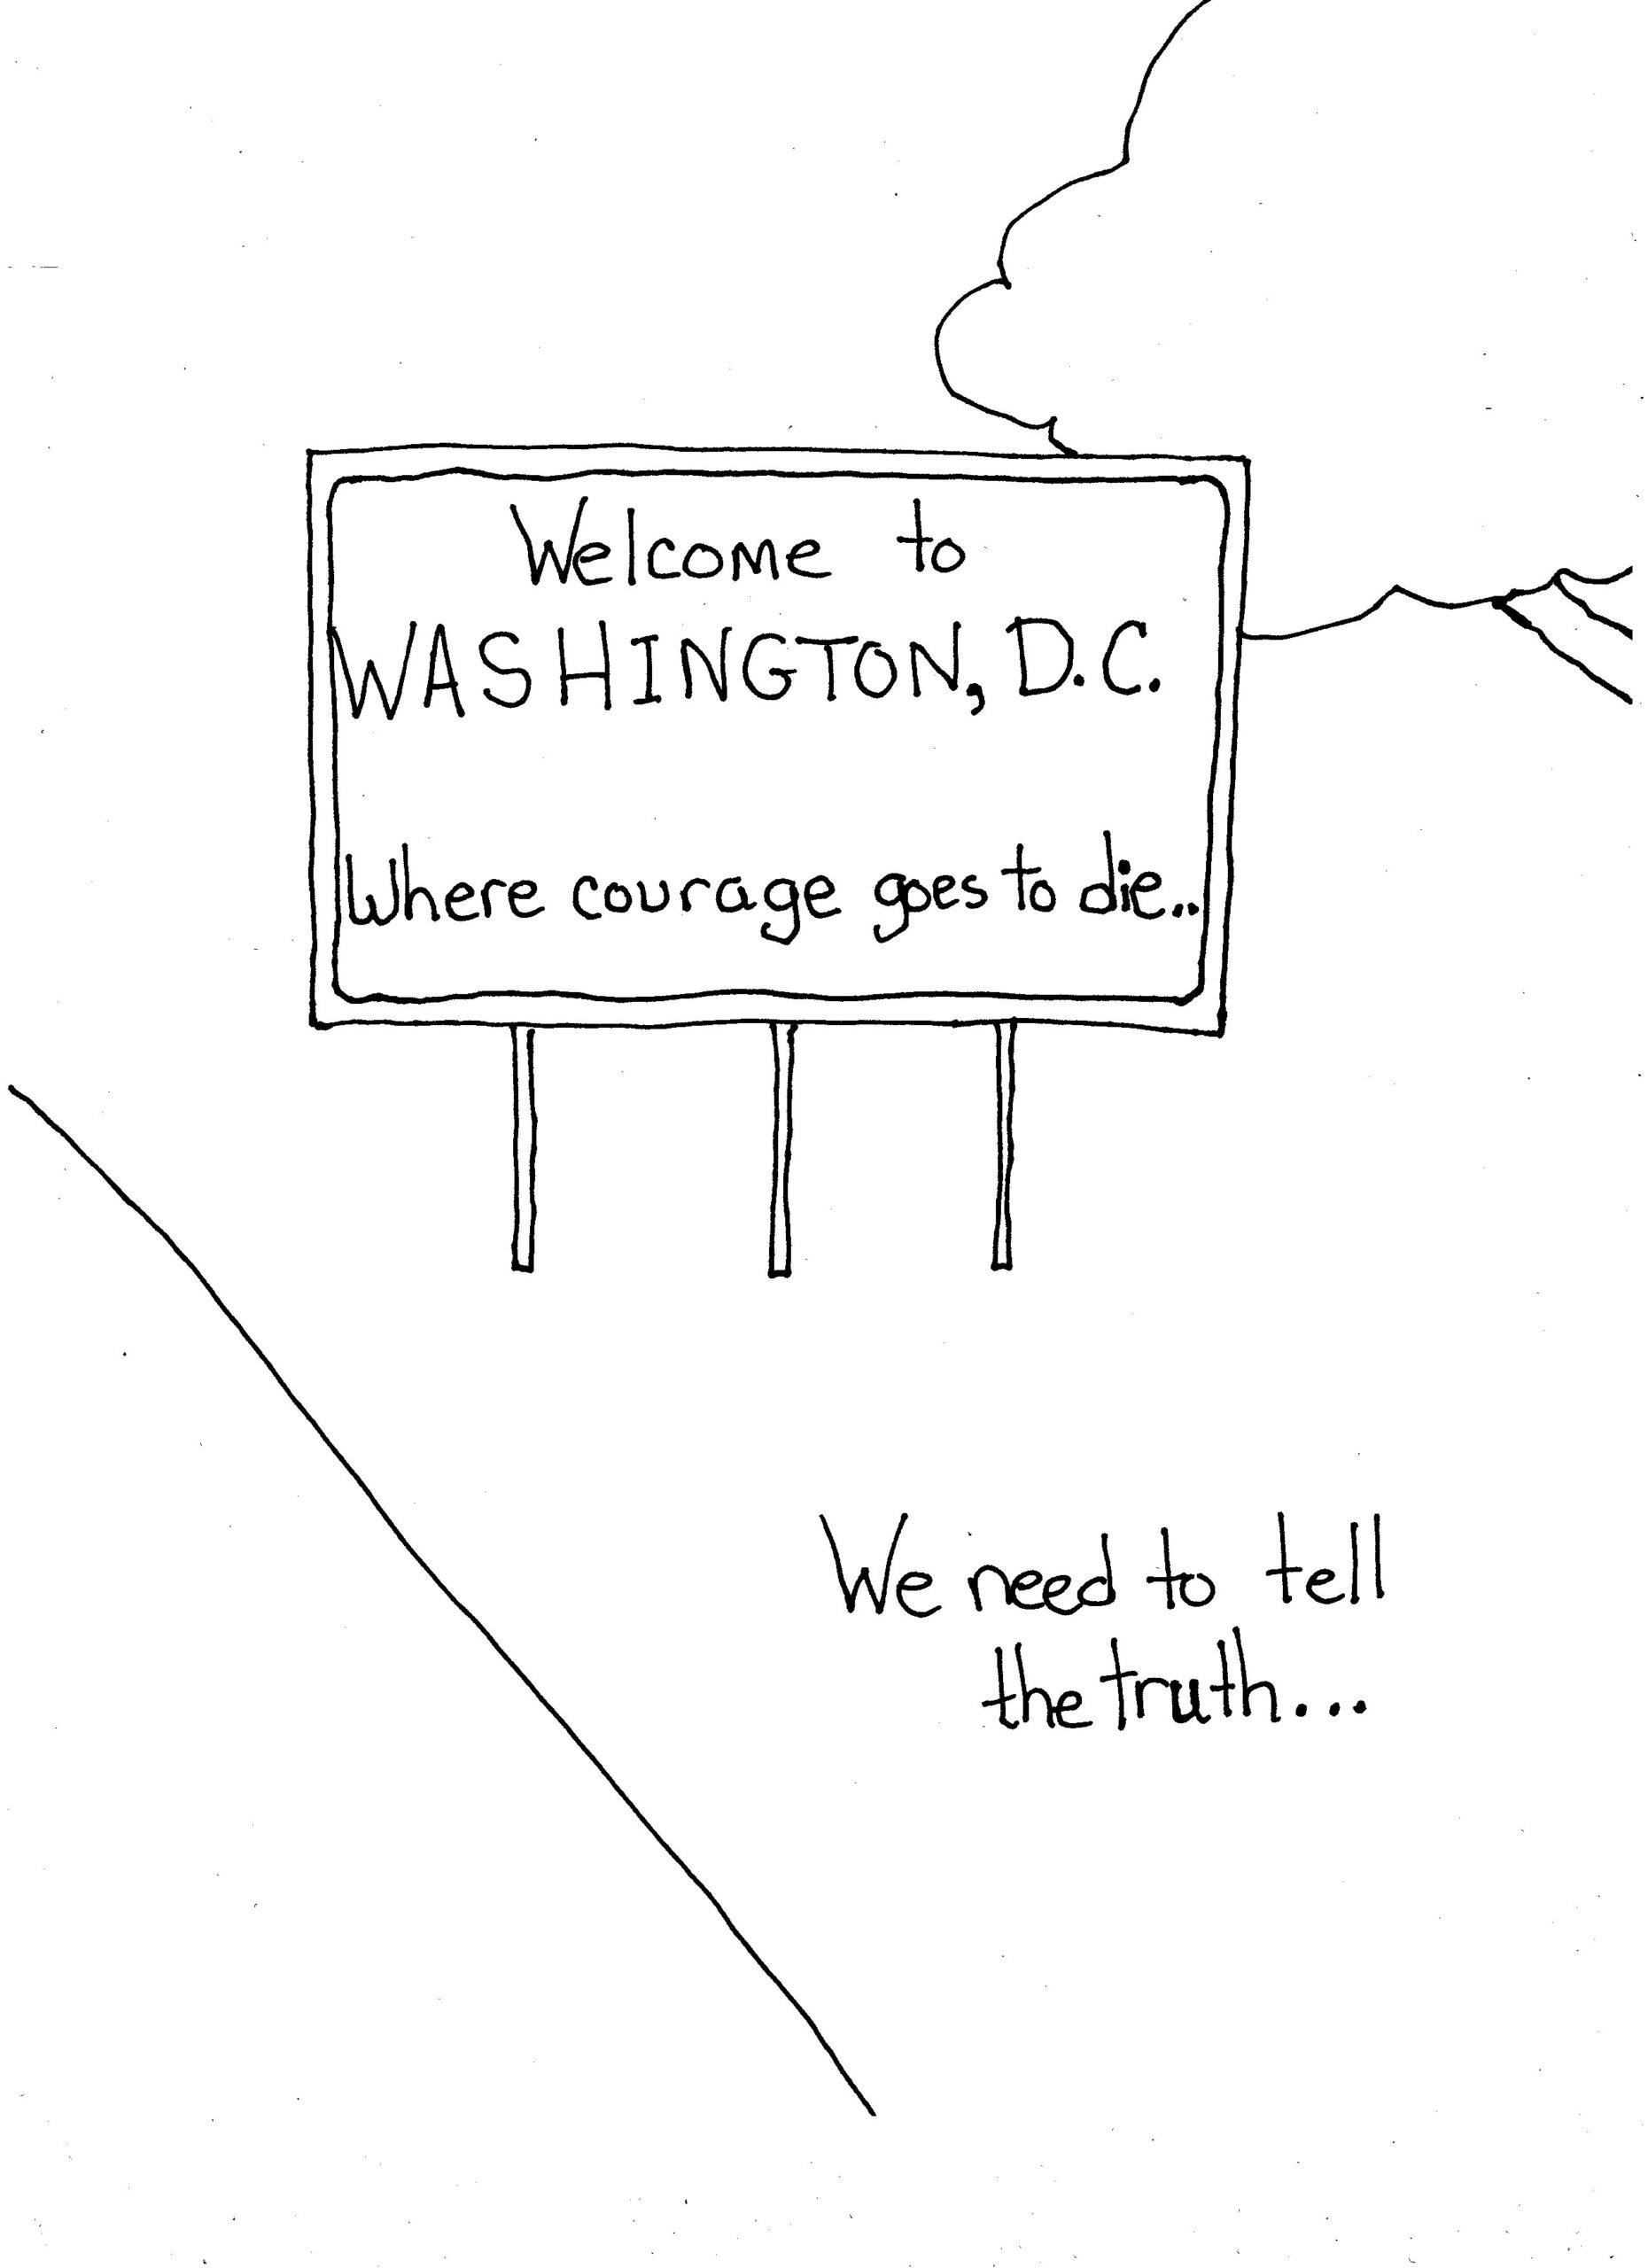 Welcome to
WASHINGTON, D.C.
Where courage goes to die..
We need to tell
the truth...